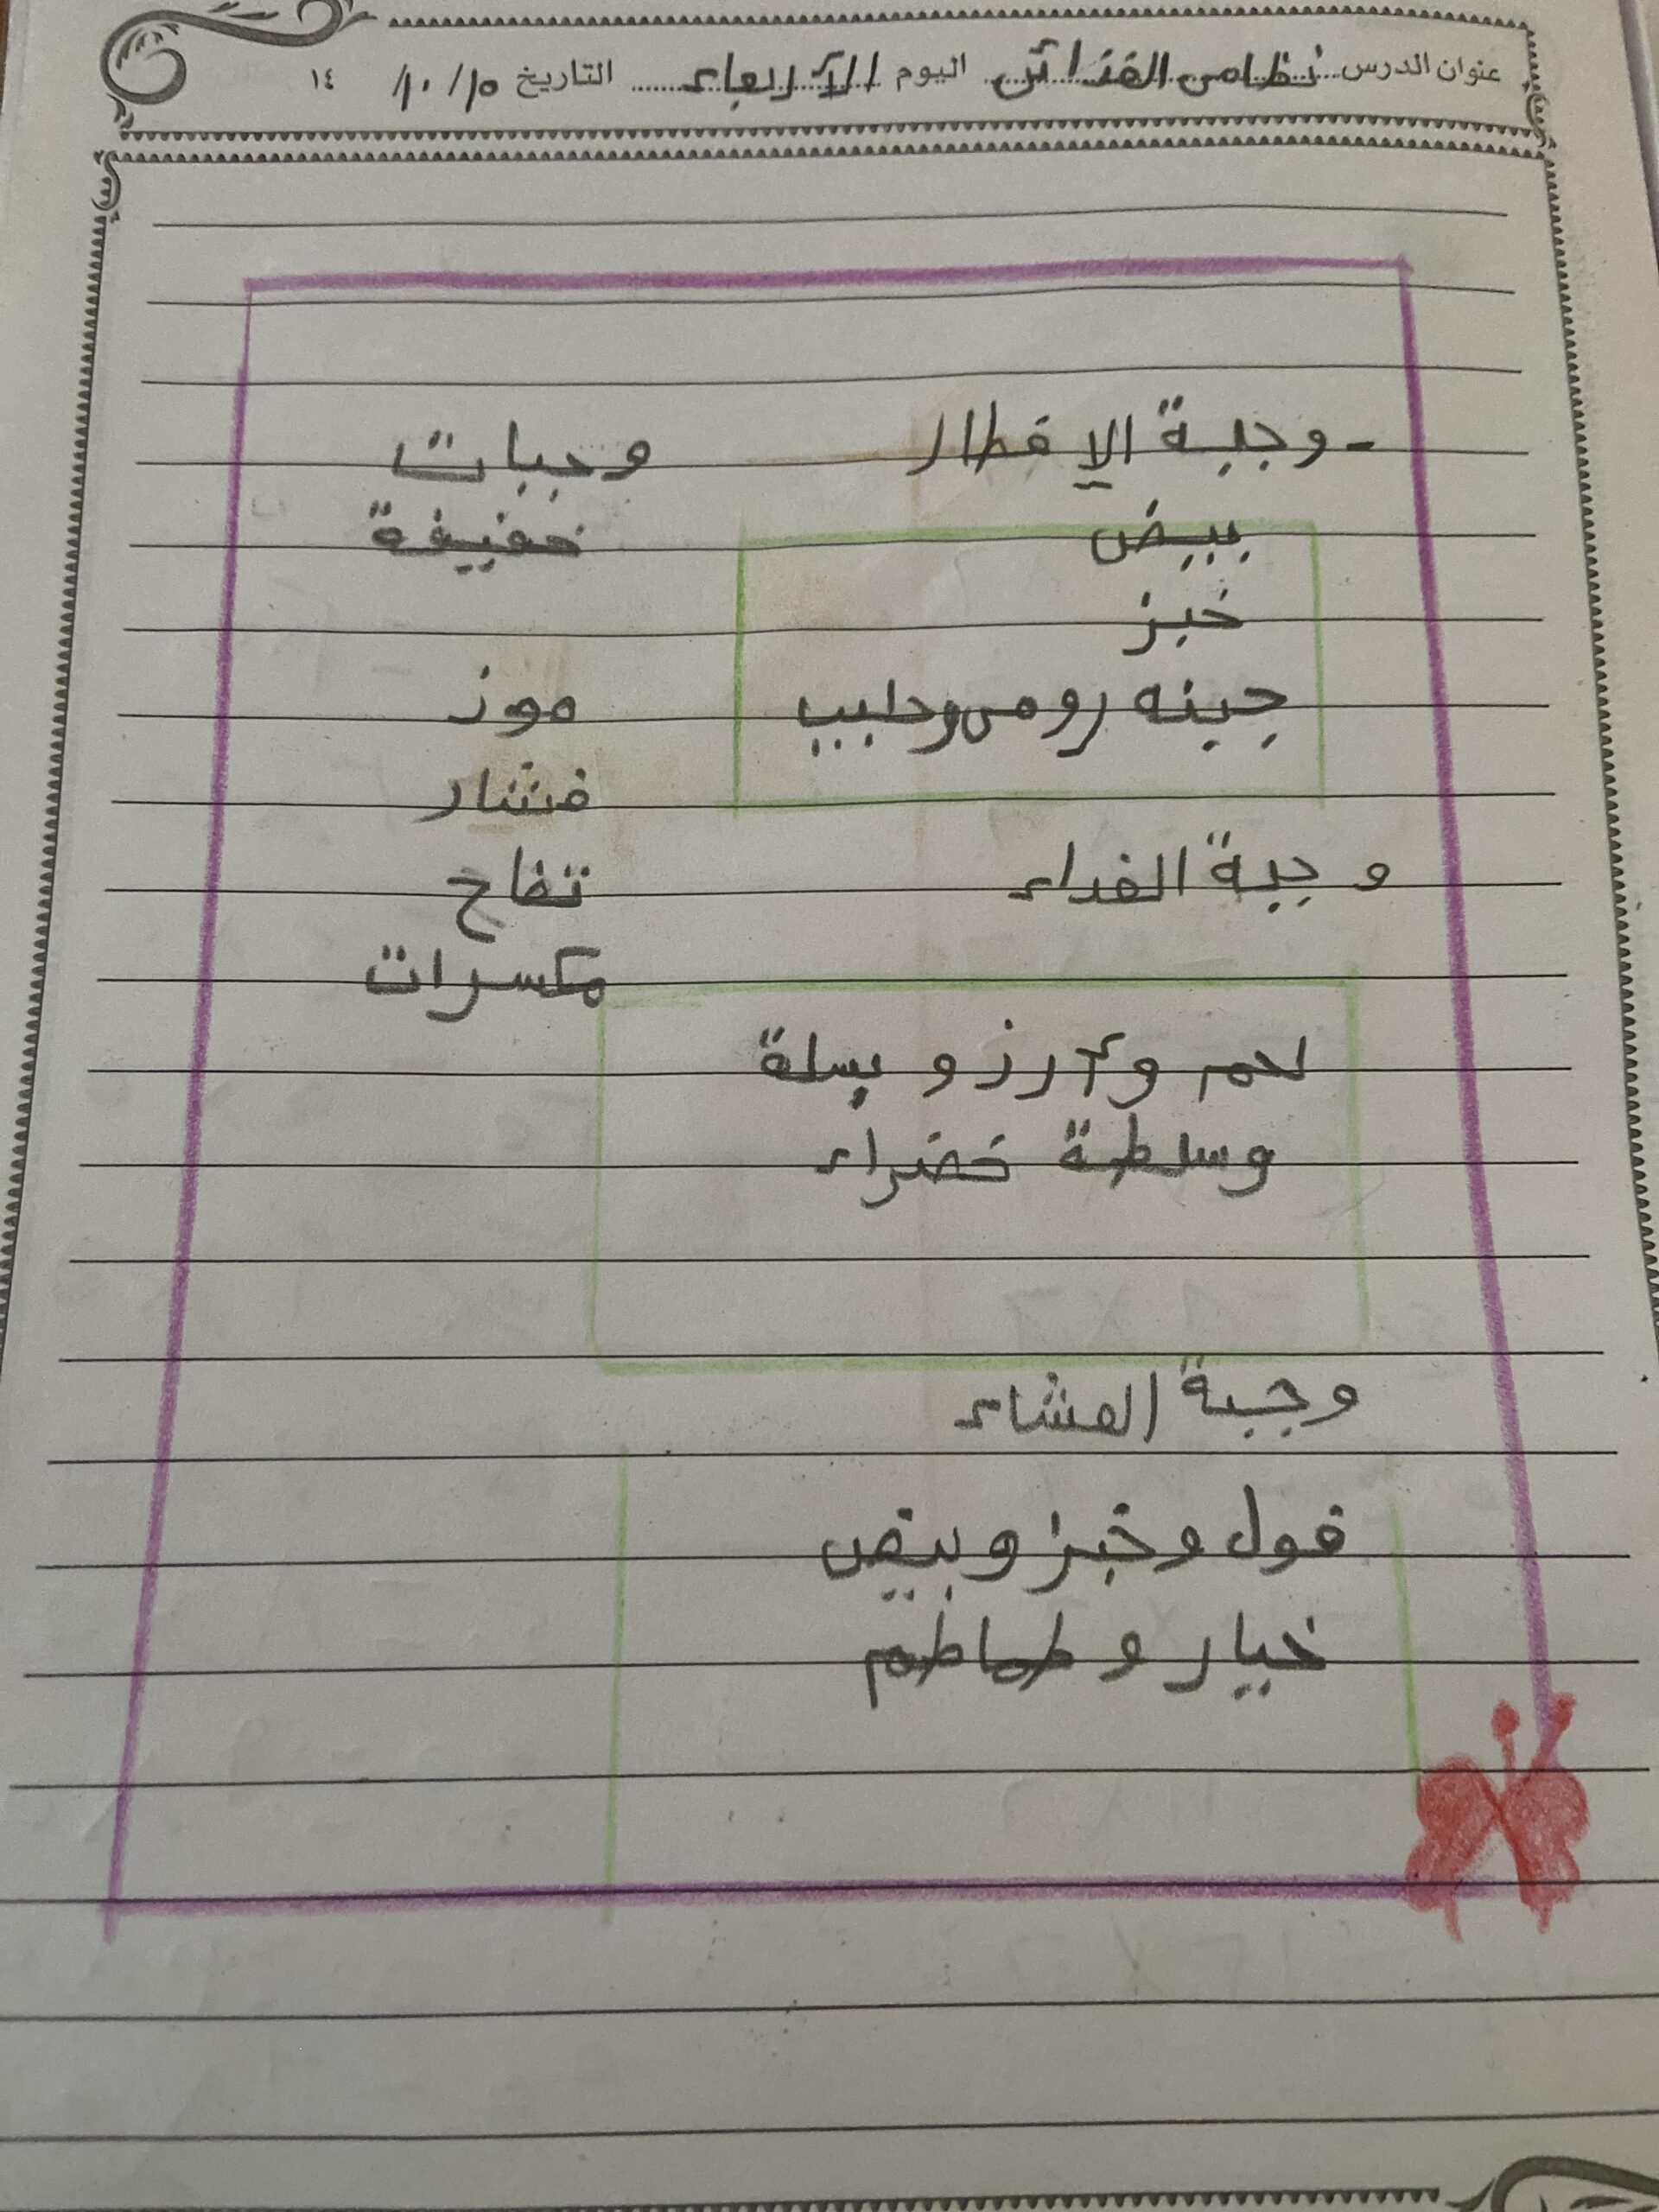 عنوان الدرس نظامى الغذائى اليوم الأربعاء التاريخ ١٥/ ١٠/ ١٤
- وجبة الإفطار
بيض
خبز
جبنه رومى وحليب
وجبة الغداء
لحم وأرز و بسلة
وسلطة خضراء
وجبة العشاء
فول وخبز وبيض
خيار و طماطم
وجبات
خفيفة
موز
فشار
تفاح
مكسرات